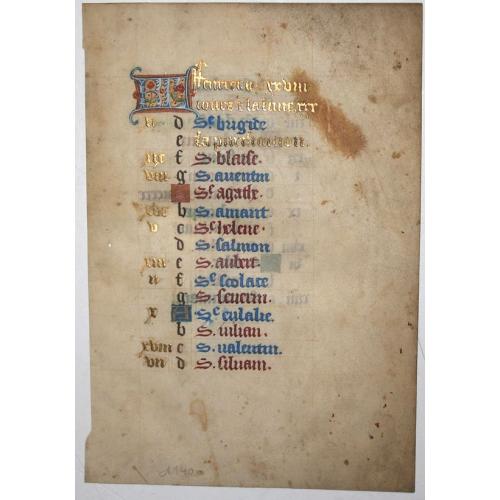 xxviii
iours & la lune. xxx
d Sᵉ brigide
e
xix f S. blaise.
viii g S. auentin
Sᵉ agathe.
xvi b S. amant
v c Sᵉ helene.
d S. salmon
xiii e S. aubert.
ii f Sᵉ scolace
g S. seuerin.
x Sᵉ eulalie.
b S. iulian.
xviii c S. ualentin.
vii d S. siluain.
1140